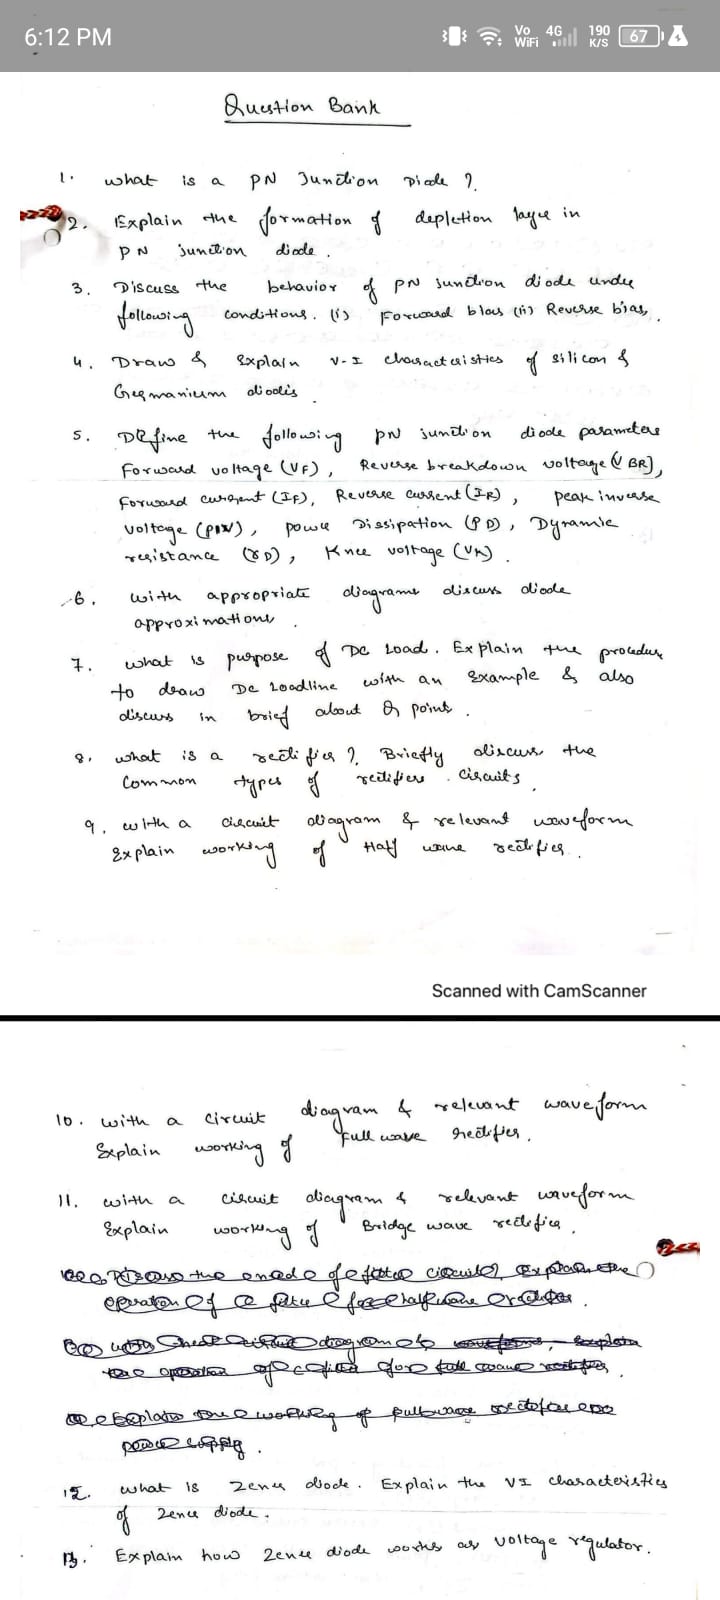 6:12 PM
Vo WiFi 4G 190 K/S 67
Question Bank
1. what is a PN Junction Diode ?
2. Explain the formation of depletion layer in
PN junction diode.
3. Discuss the behavior of PN Junction diode under
following conditions. (i) Forward bias (ii) Reverse bias.
4. Draw & Explain V-I characteristics of silicon &
Germanium diodes.
5. Define the following PN junction diode parameters
Forward voltage (VF), Reverse breakdown voltage (V BR],
Forward current (IF), Reverse current (IR), peak inverse
voltage (PIV), power Dissipation (PD), Dynamic
resistance (rD), Knee voltage (VK).
6. with appropriate diagrams discuss diode
approximations.
7. what is purpose of DC Load. Explain the procedure
to draw DC Loadline with an Example & also
discuss in brief about Q point.
8. what is a rectifier ? Briefly discuss the
Common types of rectifiers. circuits.
9. with a circuit diagram & relevant waveform
Explain working of Half wave rectifier.
Scanned with CamScanner
10. with a circuit diagram & relevant waveform
Explain working of full wave rectifier.
11. with a circuit diagram & relevant waveform
Explain working of Bridge wave rectifier.
12. what is Zener diode. Explain the VI characteristics
of zener diode.
13. Explain how Zener diode works as voltage regulator.